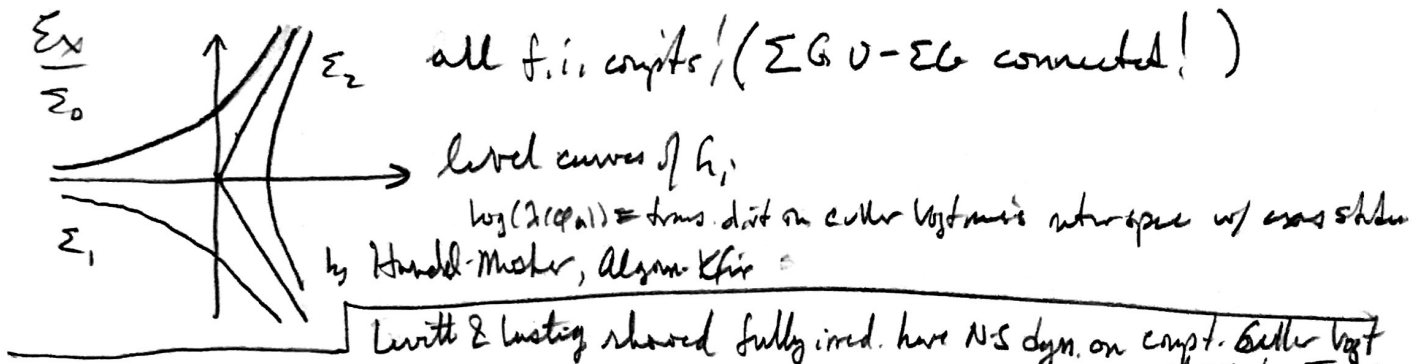 Ex
Σ0
Σ2
all f.i. compts! (ΣG ∪ -ΣG connected!)
level curves of hi
Σ1
log(λ(φa)) = trans. dist on culler Vogtmann's outer space w/
by Handel-Mosher, Algom-Kfir
Levitt & Lustig showed fully irred. have N-S dyn. on compt. Culler Vogt